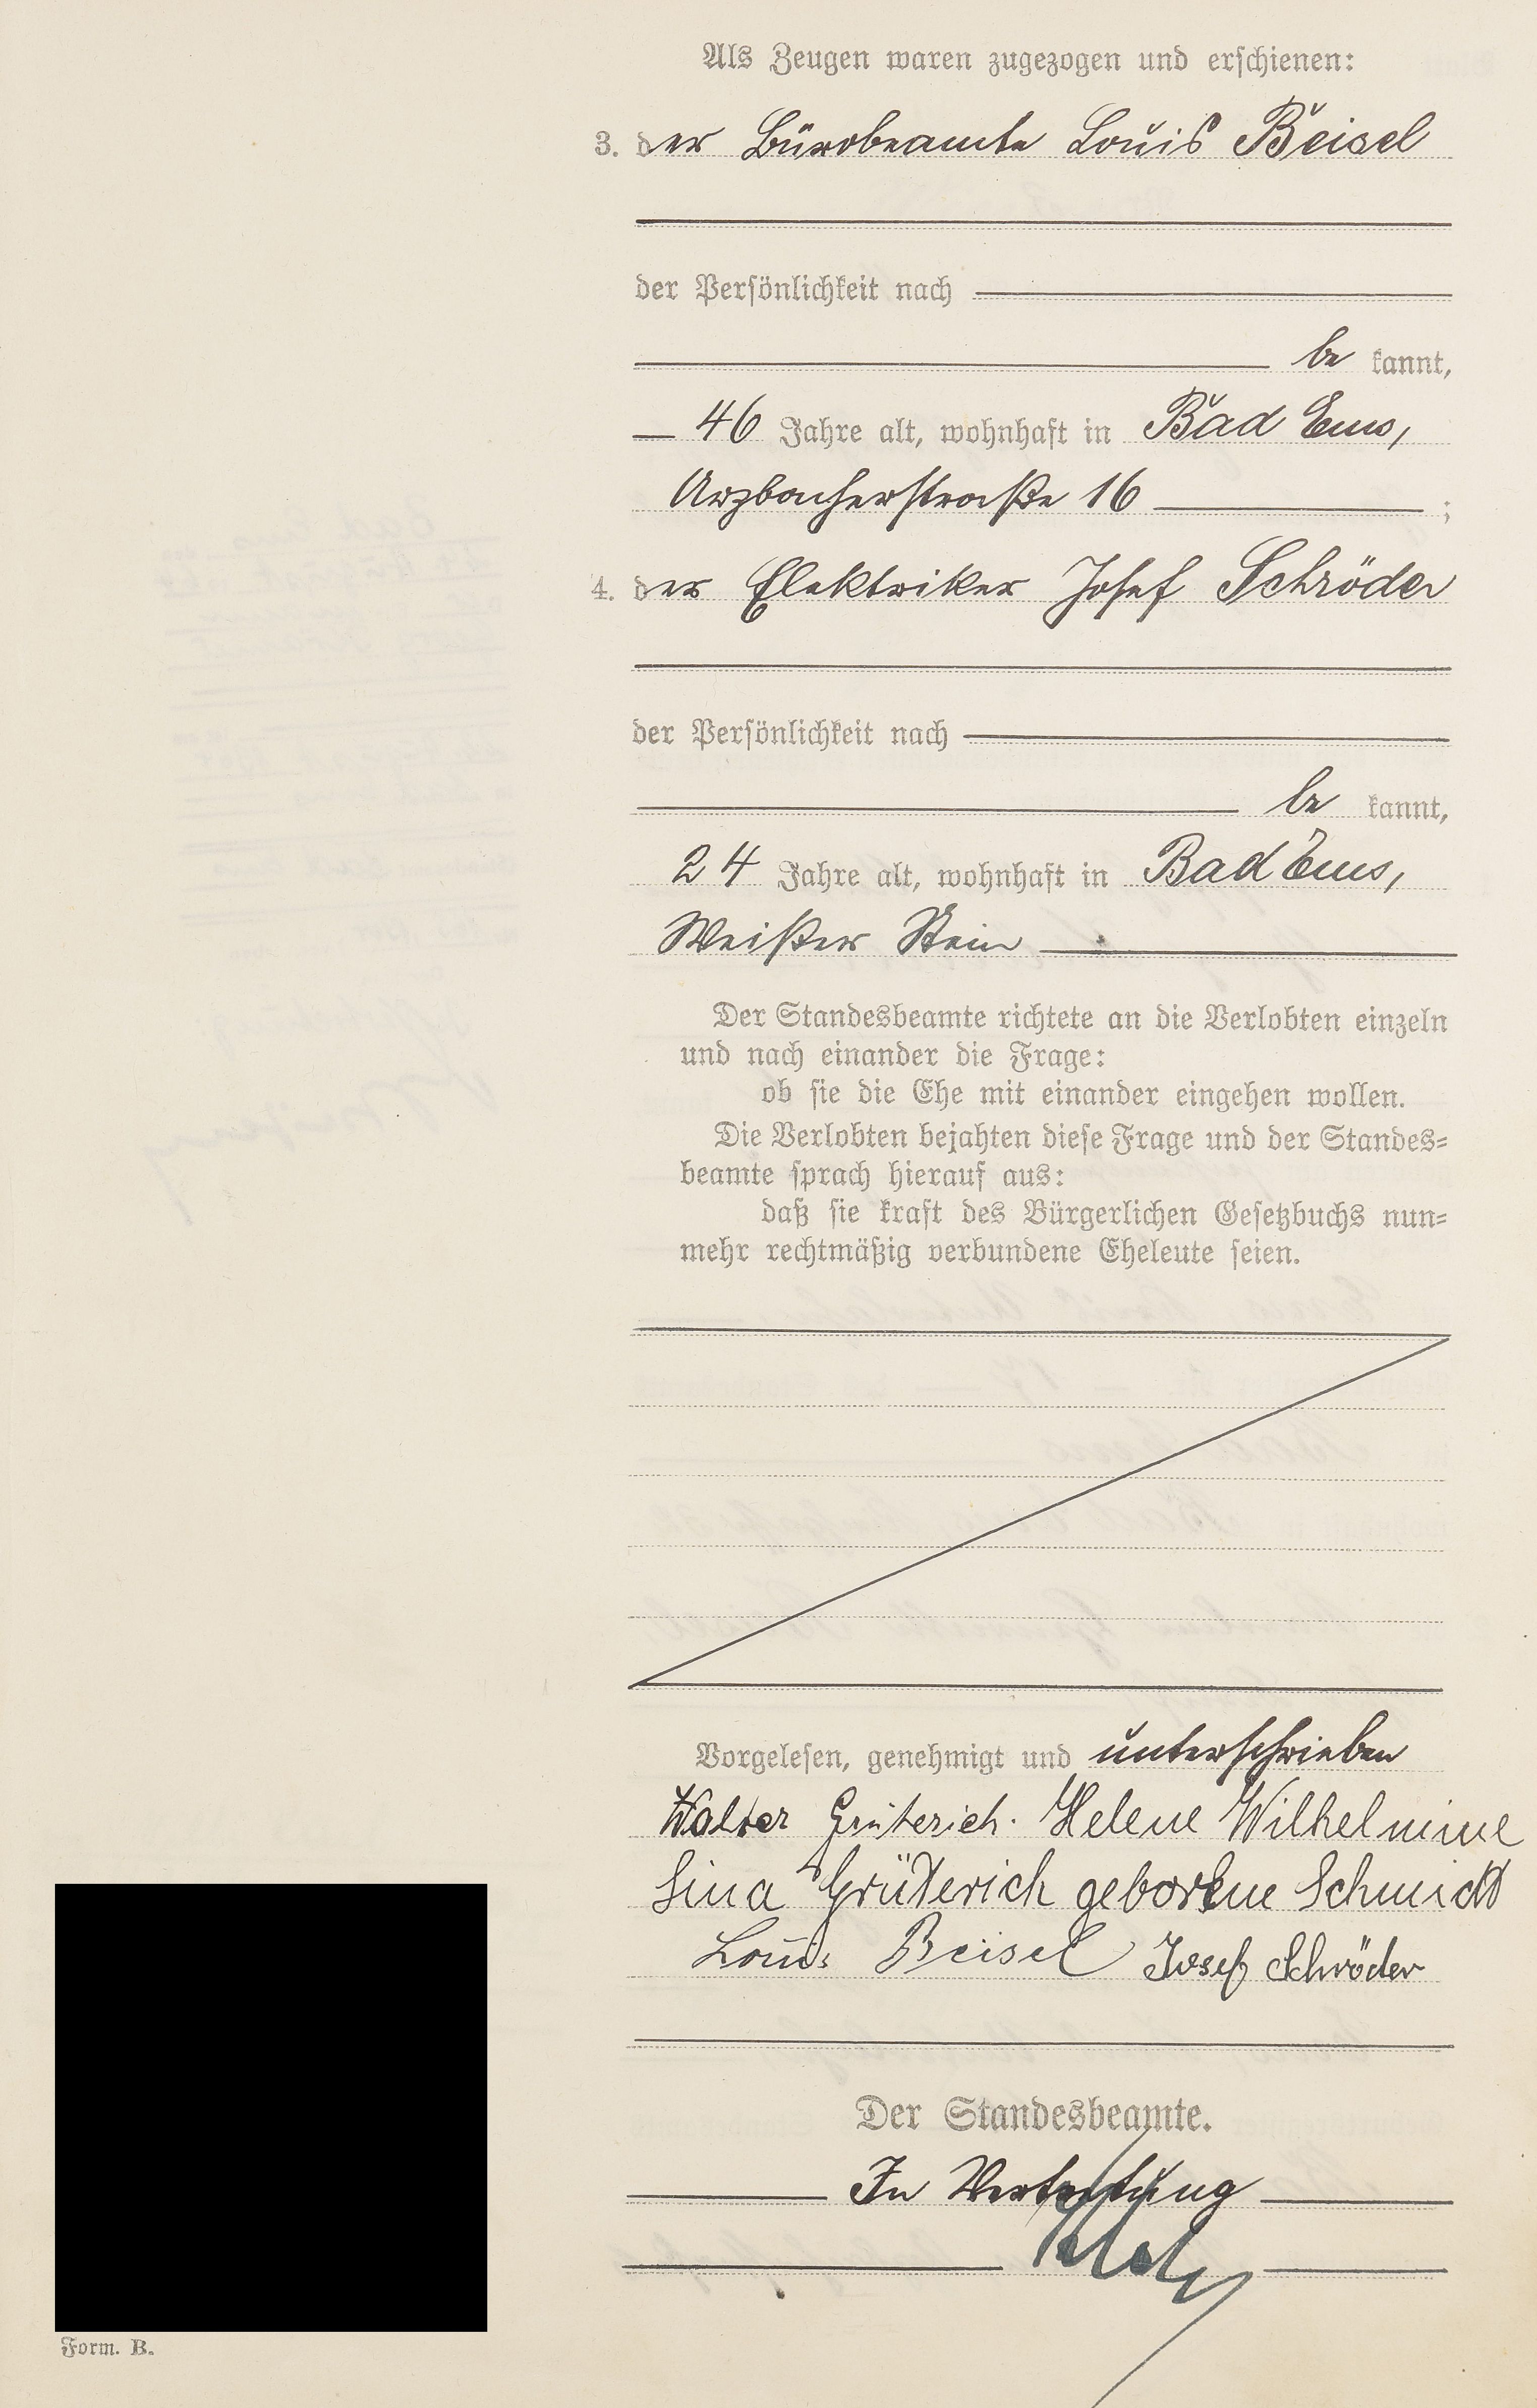 Als Zeugen waren zugezogen und erschienen:
3. der Bürobeamte Louis Beisel
der Persönlichkeit nach
be kannt,
46 Jahre alt, wohnhaft in Bad Ems,
Arzbacherstraße 16 ;
4. der Elektriker Josef Schröder
der Persönlichkeit nach
be kannt,
24 Jahre alt, wohnhaft in Bad Ems,
Weißer Stein
Der Standesbeamte richtete an die Verlobten einzeln
und nach einander die Frage:
ob sie die Ehe mit einander eingehen wollen.
Die Verlobten bejahten diese Frage und der Standes=
beamte sprach hierauf aus:
daß sie kraft des Bürgerlichen Gesetzbuchs nun=
mehr rechtmäßig verbundene Eheleute seien.
Vorgelesen, genehmigt und unterschrieben
Walter Grüterich. Helene Wilhelmine
Lina Grüterich geborene Schmidt
Louis Beisel Josef Schröder
Der Standesbeamte.
In Vertretung
Form. B.